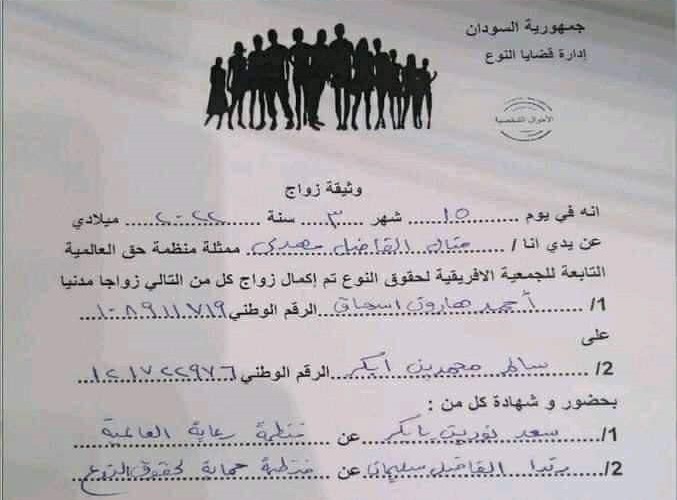 جمهورية السودان
إدارة قضايا النوع
الاحوال الشخصية
وثيقة زواج
انه في يوم ١٥ شهر ٣ سنة ٢٠٢٢ ميلادي
عن يدي انا / منال الفاضل مهدي ممثلة منظمة حق العالمية
التابعة للجمعية الافريقية لحقوق النوع تم إكمال زواج كل من التالي زواجا مدنيا
1/ أحمد هارون اسحاق الرقم الوطني ١٠٨٩١١٧١٩
على
2/ سالم محمدين ابكر الرقم الوطني ١٢١٧٢٢٩٧٦
بحضور و شهادة كل من :
1/ سعد نورين بابكر عن منظمة رعاية العالمية
2/ الفاضل سليمان عن منظمة حماية لحقوق النوع